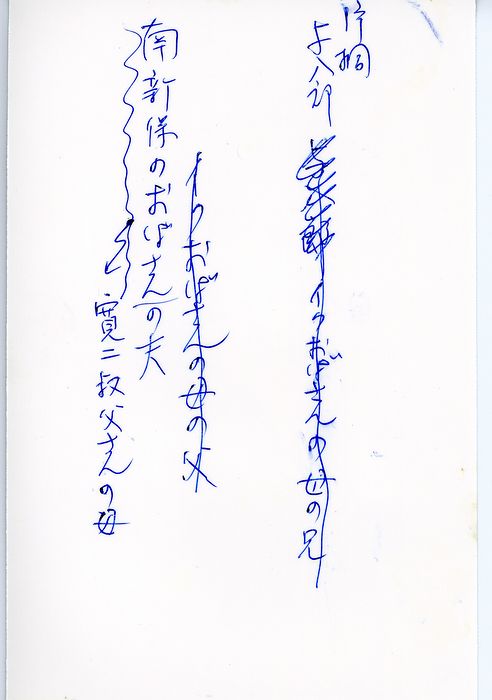 片桐
与八郎
イクおばさんの母の兄
イクおばさんの母の父
南新保のおばさんの夫
寛二叔父さんの母